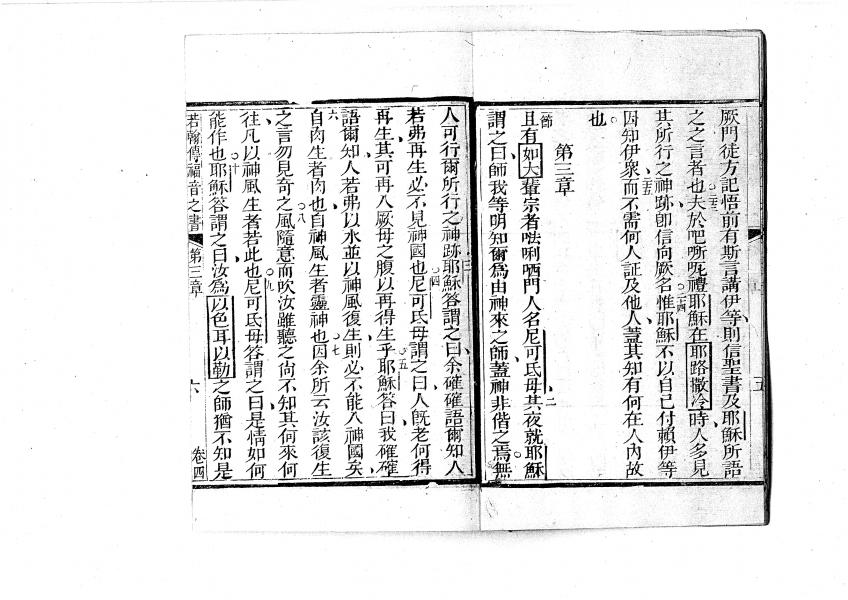 厥門徒方記悟前有斯言講伊等則信聖書及耶穌所語
之之言者也夫於吧㗭呝禮耶穌在耶路撒冷時人多見
其所行之神跡卽信向厥名惟耶穌不以自已付賴伊等
因知伊衆而不需何人証及他人蓋其知有何在人內故
也
第三章
節
且有如大輩宗者㗒唎哂門人名尼可氐母其夜就耶穌
謂之曰師我等明知爾爲由神來之師蓋神非偕之焉無
人可行爾所行之神跡耶穌答謂之曰余確確語爾知人
若弗再生必不見神國也尼可氐母謂之曰人旣老何得
再生其可再入厥母之腹以再得生乎耶穌答曰我確確
語爾知人若弗以水並以神風復生則必不能入神國矣
自肉生者肉也自神風生者靈神也因余所云汝該復生
之言勿見奇之風隨意而吹汝雖聽之尙不知其何來何
往凡以神風生者若此也尼可氐母答謂之曰是情如何
能作也耶穌答謂之曰汝爲以色耳以勒之師猶不知是
若翰傳福音之書 第三章 六 卷四